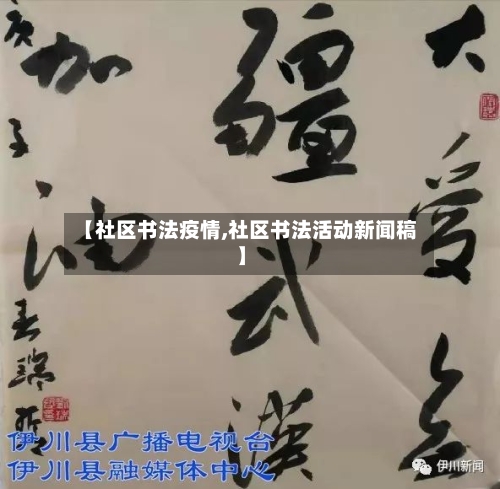 大爱无
疆武汉
加油
庚子春瑞
【社区书法疫情,社区书法活动新闻稿
】
伊川县广播电视台
伊川县融媒体中心
伊川新闻